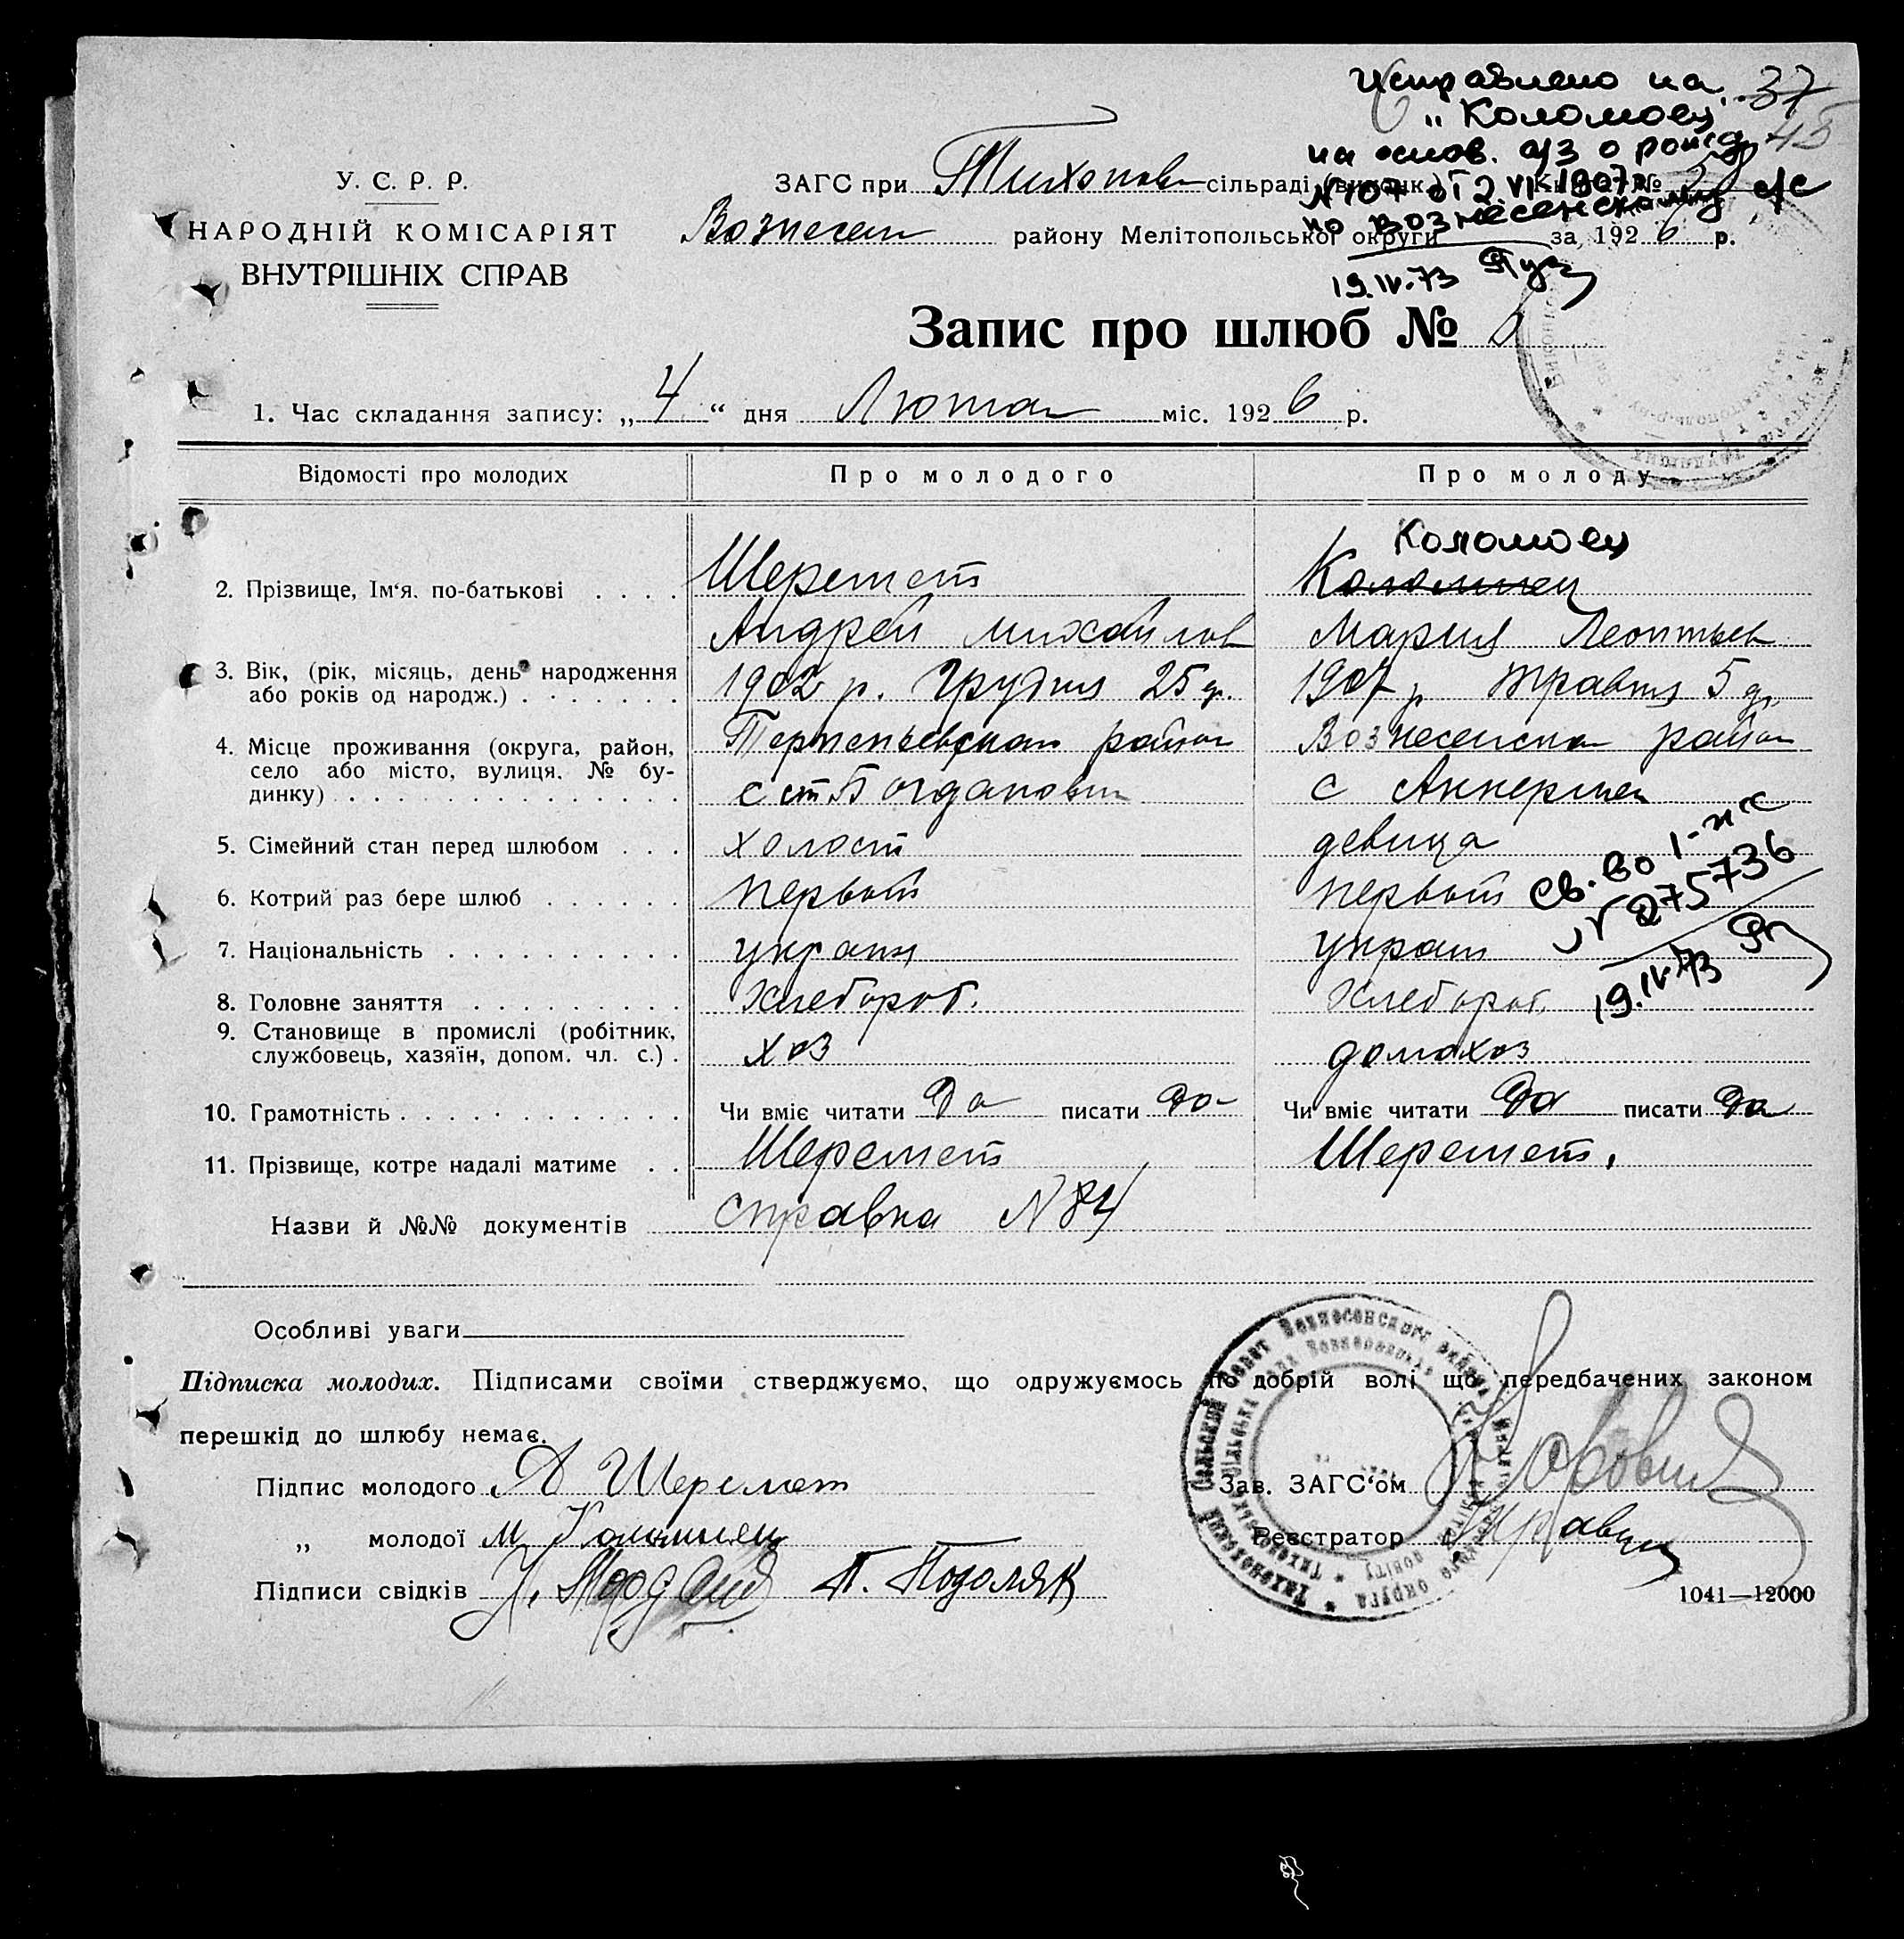 Исправлено на 37
„Коломоец" 45
на основ. а/з о рожд
У. С. Р. Р.
НАРОДНІЙ КОМІСАРІЯТ
ВНУТРІШНІХ СПРАВ
ЗАГС при Тихонов сільраді (виконк.) Книга №
N 107 от 2.VI-1907г
по Вознесенскому с/с
Вознесен району Мелітопольської округи за 1926 р.
19.IV-73
Запис про шлюб №
1. Час складання запису: „4" дня Лютая міс. 1926 р.
Відомості про молодих Про молодого Про молоду
Коломоец
2. Прізвище, Ім'я. по-батькові Шеремет Коломиец
Андрей Михайлов Мария Леонтьев
3. Вік, (рік, місяць, день народження 1902 р. Грудня 25 д. 1907 р Травня 5 д.
або років од народж.)
4. Місце проживання (округа, район, Терпеньевская район Вознесенска район
село або місто, вулиця. № бу- с ст Богдановки с Аккермен
динку)
5. Сімейний стан перед шлюбом холост девица
6. Котрий раз бере шлюб первый первый
св.-во I-ЖС
№ 275736
19.IV-73
7. Національність украин украин
8. Головне заняття Хлебороб. Хлебороб.
9. Становище в промислі (робітник, хоз домохоз
службовець, хазяїн, допом. чл. с.)
10. Грамотність Чи вміє читати да писати да Чи вміє читати да писати да
11. Прізвище, котре надалі матиме Шеремет Шеремет.
Назви й №№ документів справка N 84
Особливі уваги
Підписка молодих. Підписами своїми стверджуємо, що одружуємось по добрій волі що передбачених законом
перешкід до шлюбу немає.
Підпис молодого А Шеремет Зав. ЗАГС'ом
„ молодої М Коломиец Реєстратор
Підписи свідків П. Подоляк
1041—12000